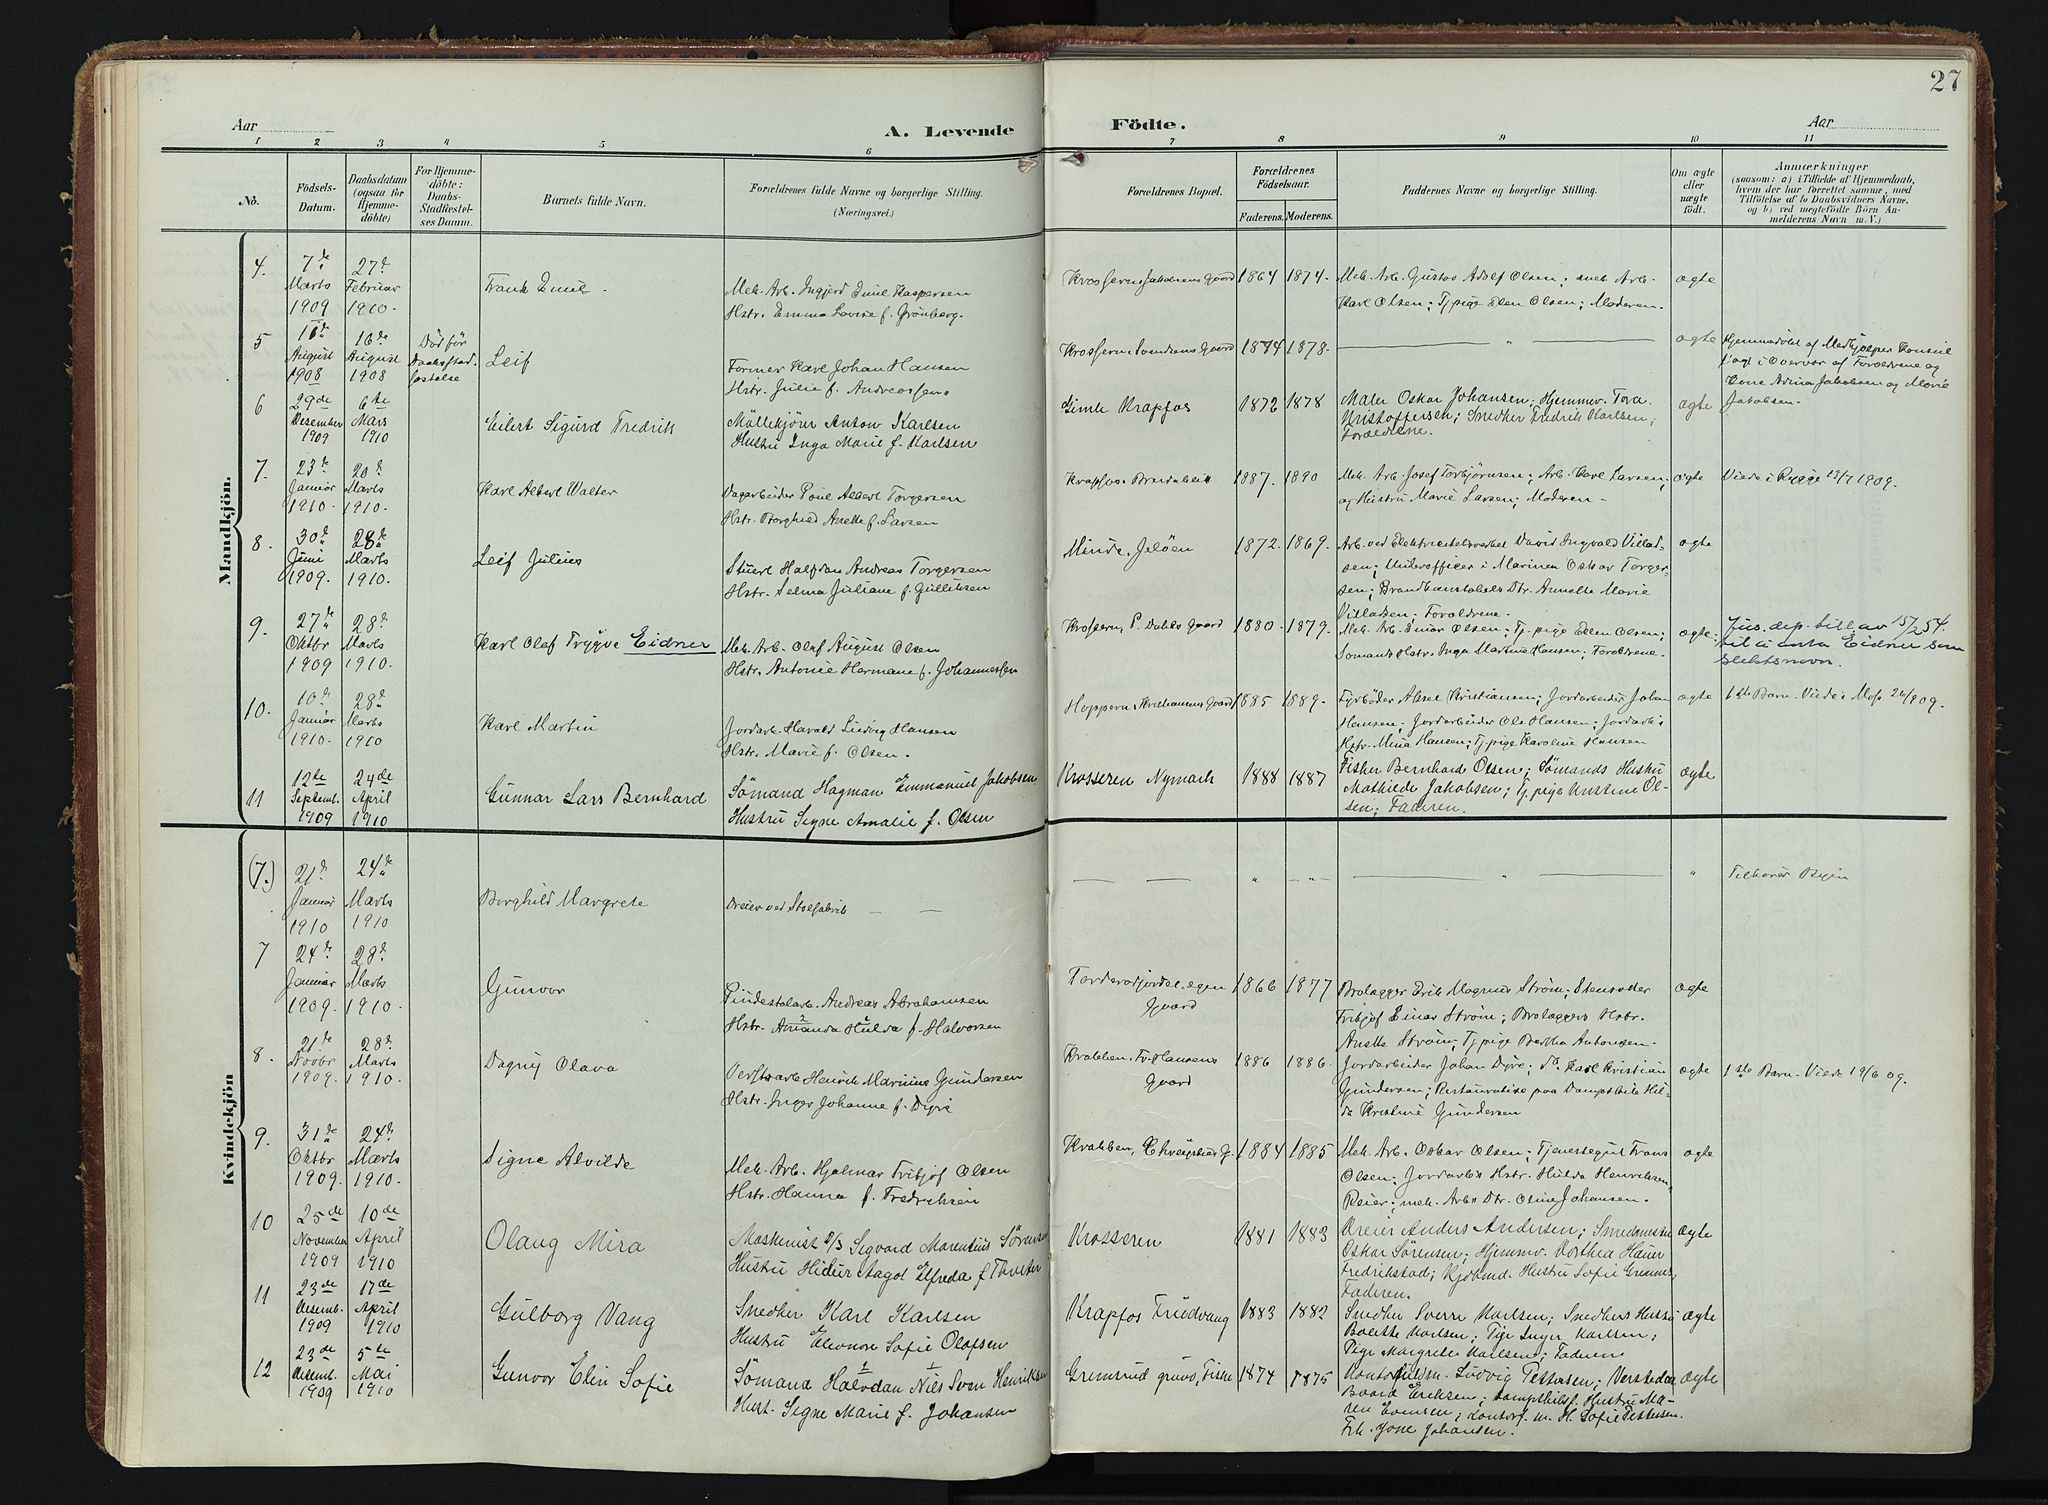 27
Aar
A. Levende Födte.
Aar
1 2 3 4 5 6 7 8 9 10 11
No.
Födsels-Datum.
Daabsdatum (ogsaa for Hjemme-döbte)
For Hjemme-döbte: Daabs-Stadfæstel-ses Datum.
Barnets fulde Navn.
Forældrenes fulde Navne og borgerlige Stilling.
(Næringsvei.)
Forældrenes Bopæl.
Forældrenes Födselsaar.
Faderens. Moderens.
Faddernes Navne og borgerlige Stilling.
Om ægte eller uægte födt.
Anmærkninger
(saasom: a) i Tilfælde af Hjemmedaab,
hvem der har forrettet samme, med
Tilföielse af to Daabsvidners Navne.
og b) ved uægtefödte Börn An-
melderens Navn m. V.)
Mandkjön.
4. 7de Marts 1909 27de Februar 1910.
Frank Emil.
Mek. Arb. Ingjerd Emil Kaspersen
Hstr. Emma Lovise f. Grönberg.
Krossern, Jakobsens Gaard 1864 1874.
Mek. Arb. Gustav Adolf Olsen; mek Arb.
Karl Olsen; Tj. pige Ellen Olsen; Moderen.
ægte
5 11te August 1908 16de August 1908
Död för Daabsstad-fæstelse
Leif
Former Karl Johan Hansen
Hstr. Julie f. Andreassen
Krossern, Svendsens Gaard 1874 1878.
ægte
Hjemmedöbt af Medhjælper Konsul
Vogt i Overvær af Forældrene og
Enne Adina Jakobsen og Marie
Jakobsen.
6 29de Desember 1909 6te Mars 1910
Eilert Sigurd Fredrik
Möllekjörer Anton Karlsen
Hustru Inga Marie f. Karlsen
Gimle Krapfos 1872 1878
Maler Oskar Johansen; Hjemmev. Tora
Kristoffersen; Snedker Fredrik Karlsen;
Forældrene.
ægte
7. 23de Januar 1910. 20de Marts 1910.
Karl Albert Walter
Dagarbeider Poul Albert Torgersen
Hstr. Borghild Anette f. Larsen
Krapfos. 1887. 1890
Mek. Arb. Josef Torbjörnsen; Arb. Karl Larsen;
og Hustru Marie Larsen; Moderen.
ægte Viede i Rygge 13/7 1909.
8. 30de Juni 1909. 28de Marts 1910.
Leif Julius
Stuert Halfdan Andreas Torgersen
Hstr. Selma Juliane f. Gulliksen
Minde, Jelöen 1872. 1869.
Arb. ved Elektricitetsverket David Ingvald Villad-
sen; Underofficer i Marinen Oskar Torger-
sen; Brandkonstabels Dtr. Annette Marie
Villadsen. Forældrene.
ægte
9. 27de Oktbr 1909 28de Marts 1910.
Karl Olaf Trygve Eidner
Mek. Arb. Olaf August Olsen
Hstr. Antonie Hermane f. Johannessen
Krossern, P. Dahls Gaard 1880. 1879.
Mek. Arb. Einar Olsen; Tj. pige Ellen Olsen;
Somands Hstr. Inga Martine Hansen; Forældrene.
ægte.
Jus. dep. till. av 15/2 54.
til å anta Eidner som
slektsnavn.
10. 10de Januar 1910. 28de Marts 1910
Karl Martin
Jordarb. Harald Ludvig Hansen
Hstr. Marie f. Olsen.
Hoppern, Kristiansens Gaard 1885 1889.
Fyrböder Aksel Kristiansen; Jordarbeider Johan
Hansen; Jordarbeider Ole Hansen; Jordarb's
Hstr. Mina Hansen; Tj. pige Karoline Hansen
ægte 1ste Barn. Viede i Moss 26/9 09.
11 12te Septemb. 1909 24de April 1910
Gunnar Lars Bernhard
Sömand Hagman Emmanuel Jakobsen
Hustru Signe Amalie f. Olsen
Krosseren Nymark 1888 1887
Fisker Bernhard Olsen; Sömands Hustru
Mathilde Jakobsen; Tj. pige Kristine Ol-
sen; Faderen.
ægte
Kvindekjön
(7.) 21de Januar 1910 24de Marts 1910
Borghild Margrete
Dreier ved Stolfabrik
Tilhörer Byen
7 24de Januar 1909. 28de Marts 1910.
Gunvor
Pindestolarb. Andreas Abrahamsen
Hstr. Amanda Hulda f. Halvorsen
egen Gaard 1866 1877
Brolægger Erik Magnus Ström;
Fritjof Einar Ström; Brolæggers Hstr.
Anette Ström; Tj. pige Bertha Antonsen.
ægte
8. 21de Novbr 1909. 28de Marts 1910.
Dagny Olava
Verftsarb Henrik Marinius Gundersen
Hstr. Inger Johanne f. Dyre
Krabben, Fr. Hansens Gaard 1886 1886.
Jordarbeider Johan Dyre; Do. Karl Kristian
Gundersen; Restauratrice paa Dampskib Hil-
da Kristine Gundersen
ægte 1ste Barn. Viede 19/6 09.
9. 31de Oktbr 1909. 24de Marts 1910.
Signe Alvilde
Mek. Arb. Hjalmar Fritjof Olsen
Hstr. Hanna f. Fredriksen
Krabben, G. 1884 1885
Mek. Arb. Oskar Olsen; Tjenestegut Frans
Olsen; Jordarb's Hstr. Hulda Henriksen,
Reier; mek. Arb's Dtr. Oline Johansen.
ægte
10 25de November 1909 10de April 1910
Olaug Mira
Maskinist Sigvard Marentius Sörensen
Hustru Hidur Aagot Elfreda f.
Krosseren 1881 1883
Dreier Anders Andersen; Smedmester
Oskar Sörensen; Hjemmv. Dorthea
Fredrikstad; Kjöbmd. Hustru Sofie
Faderen.
ægte
11 23de Desemb. 1909 17de April 1910
Gulborg Vang
Snedker Karl Karlsen
Hustru Eleonore Sofie Olafsen
Krapfos Frudvang 1883 1882
Snedker Sverre Karlsen; Snedkers Hustru
Bolette Karlsen; Pige Inger Karlsen;
Pige Margrete Karlsen; Faderen
ægte
12 23de Desemb. 1909 5te Mai 1910
Gunvor Elin Sofie
Sömand Halvdan Nils Sven Henriksen
Hust. Signe Marie f. Johansen
Gremsrud 1874 1875
Ludvig Pettersen;
Baard Eriksen; Dampskibsf. Hustru Ma-
ren Evensen; Kontorf. m. H. Sofie Pettersen.
Frk. Jone Johansen.
ægte